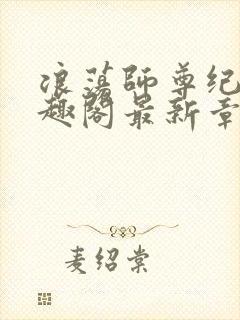 浪荡师尊纪
趣阁最新章
麦绍棠